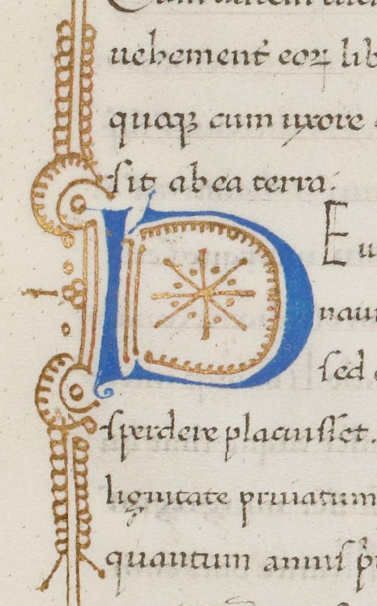 uehement eoꝝ lib
quaqꝫ cum uxore
sit ab ea terra.
D Eu
naui
sed
sperdere placuisset.
lignitate priuatum
quantum annis